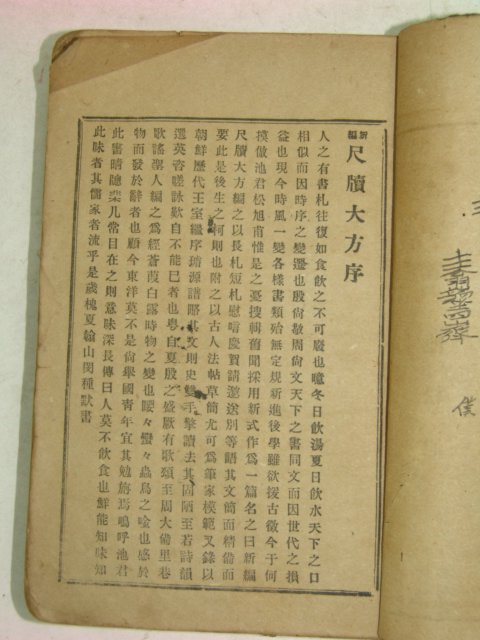 新編 尺牘大方序
人之有書札往復如食飮之不可廢也噫冬日飮湯夏日飮水天下之口
相似而因時序之變遷也殷尙敬周尙文天下之書同文而因世代之損
益也現今時風一變各樣書類殆無定規新進後學雖欲援古徵今于何
摸倣池君松旭甫惟是之憂搜輯舊聞採用新式作爲一篇名之曰新編
尺牘大方編之以長札短札慰唁慶賀請邀送別等語其文簡而精備而
要此是後生之柯則也附之以古人法帖草簡尤可爲筆家模範又錄以
朝鮮歷代王室繼序璿源譜略其文則史雙手擎讀去其固陋至若詩韻
選英咨嗟詠歎自不能已者也粤自夏殷之盛厥有歌頌至周大備里巷
歌謠聖人編之爲經蒼葭白露時物之變也喓々蠻々蟲鳥之喩也感於
物而發於辭者也顧今東洋莫不是尙擧國靑年宜其勉旃焉嗚呼池君
此書暗牕棐几常目在之則意味深長傳曰人莫不飮食也鮮能知味知
此味者其儒家者流乎是歲槐夏翰山閔種默書
僕